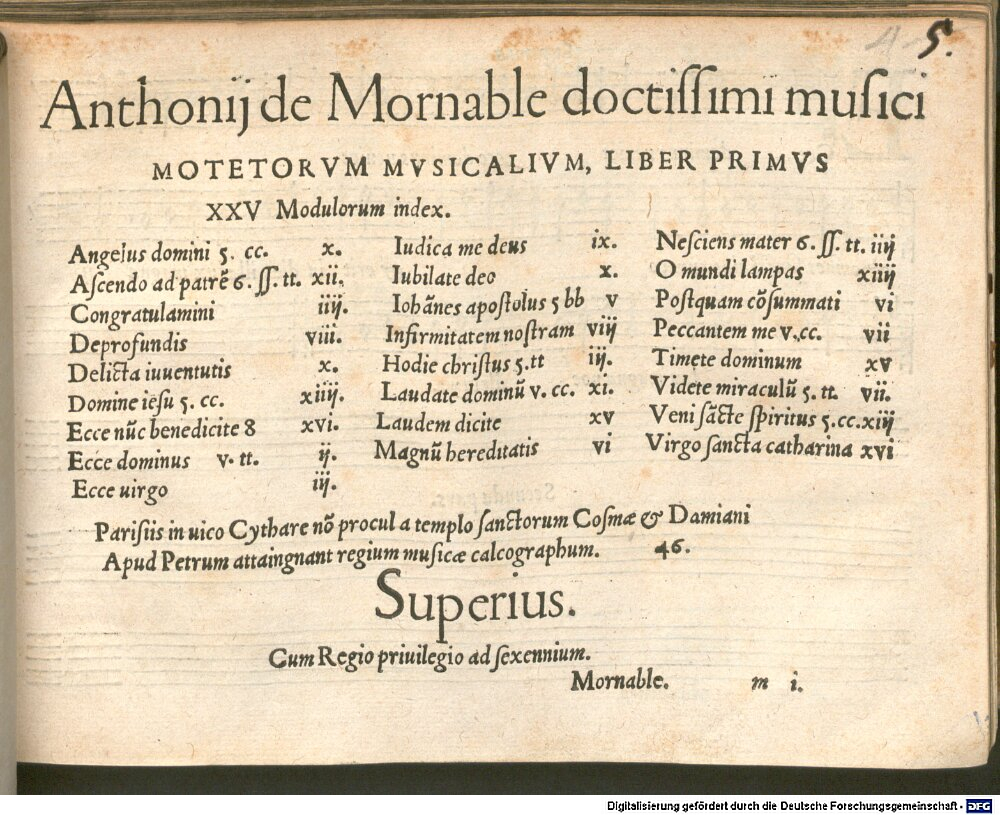 5.
Anthonij de Mornable doctiſſimi muſici
MOTETORVM MVSICALIVM, LIBER PRIMVS
XXV Modulorum index.
Angelus domini 5. cc. x.
Aſcendo ad patrẽ 6. ſſ. tt. xii.
Congratulamini iiij.
Deprofundis viii.
Delicta iuuentutis x.
Domine ieſū 5. cc. xiiij.
Ecce nūc benedicite 8 xvi.
Ecce dominus v. tt. ij.
Ecce uirgo iij.
Iudica me deus ix.
Iubilate deo x.
Iohānes apoſtolus 5 bb v
Infirmitatem noſtram viij
Hodie chriſtus 5.tt iij.
Laudate dominū v. cc. xi.
Laudem dicite xv
Magnū hereditatis vi
Neſciens mater 6. ſſ. tt. iiij
O mundi lampas xiiij
Poſtquam cōſummati vi
Peccantem me v.cc. vii
Timete dominum xv
Videte miraculū 5. tt. vii.
Veni ſācte ſpiritus 5.cc. xiij
Virgo ſancta catharina xvi
Pariſiis in uico Cythare nō procul a templo ſanctorum Coſmæ & Damiani
Apud Petrum attaingnant regium muſicæ calcographum. 46.
Superius.
Cum Regio priuilegio ad ſexennium.
Mornable. m i.
Digitalisierung gefördert durch die Deutsche Forschungsgemeinschaft - DFG